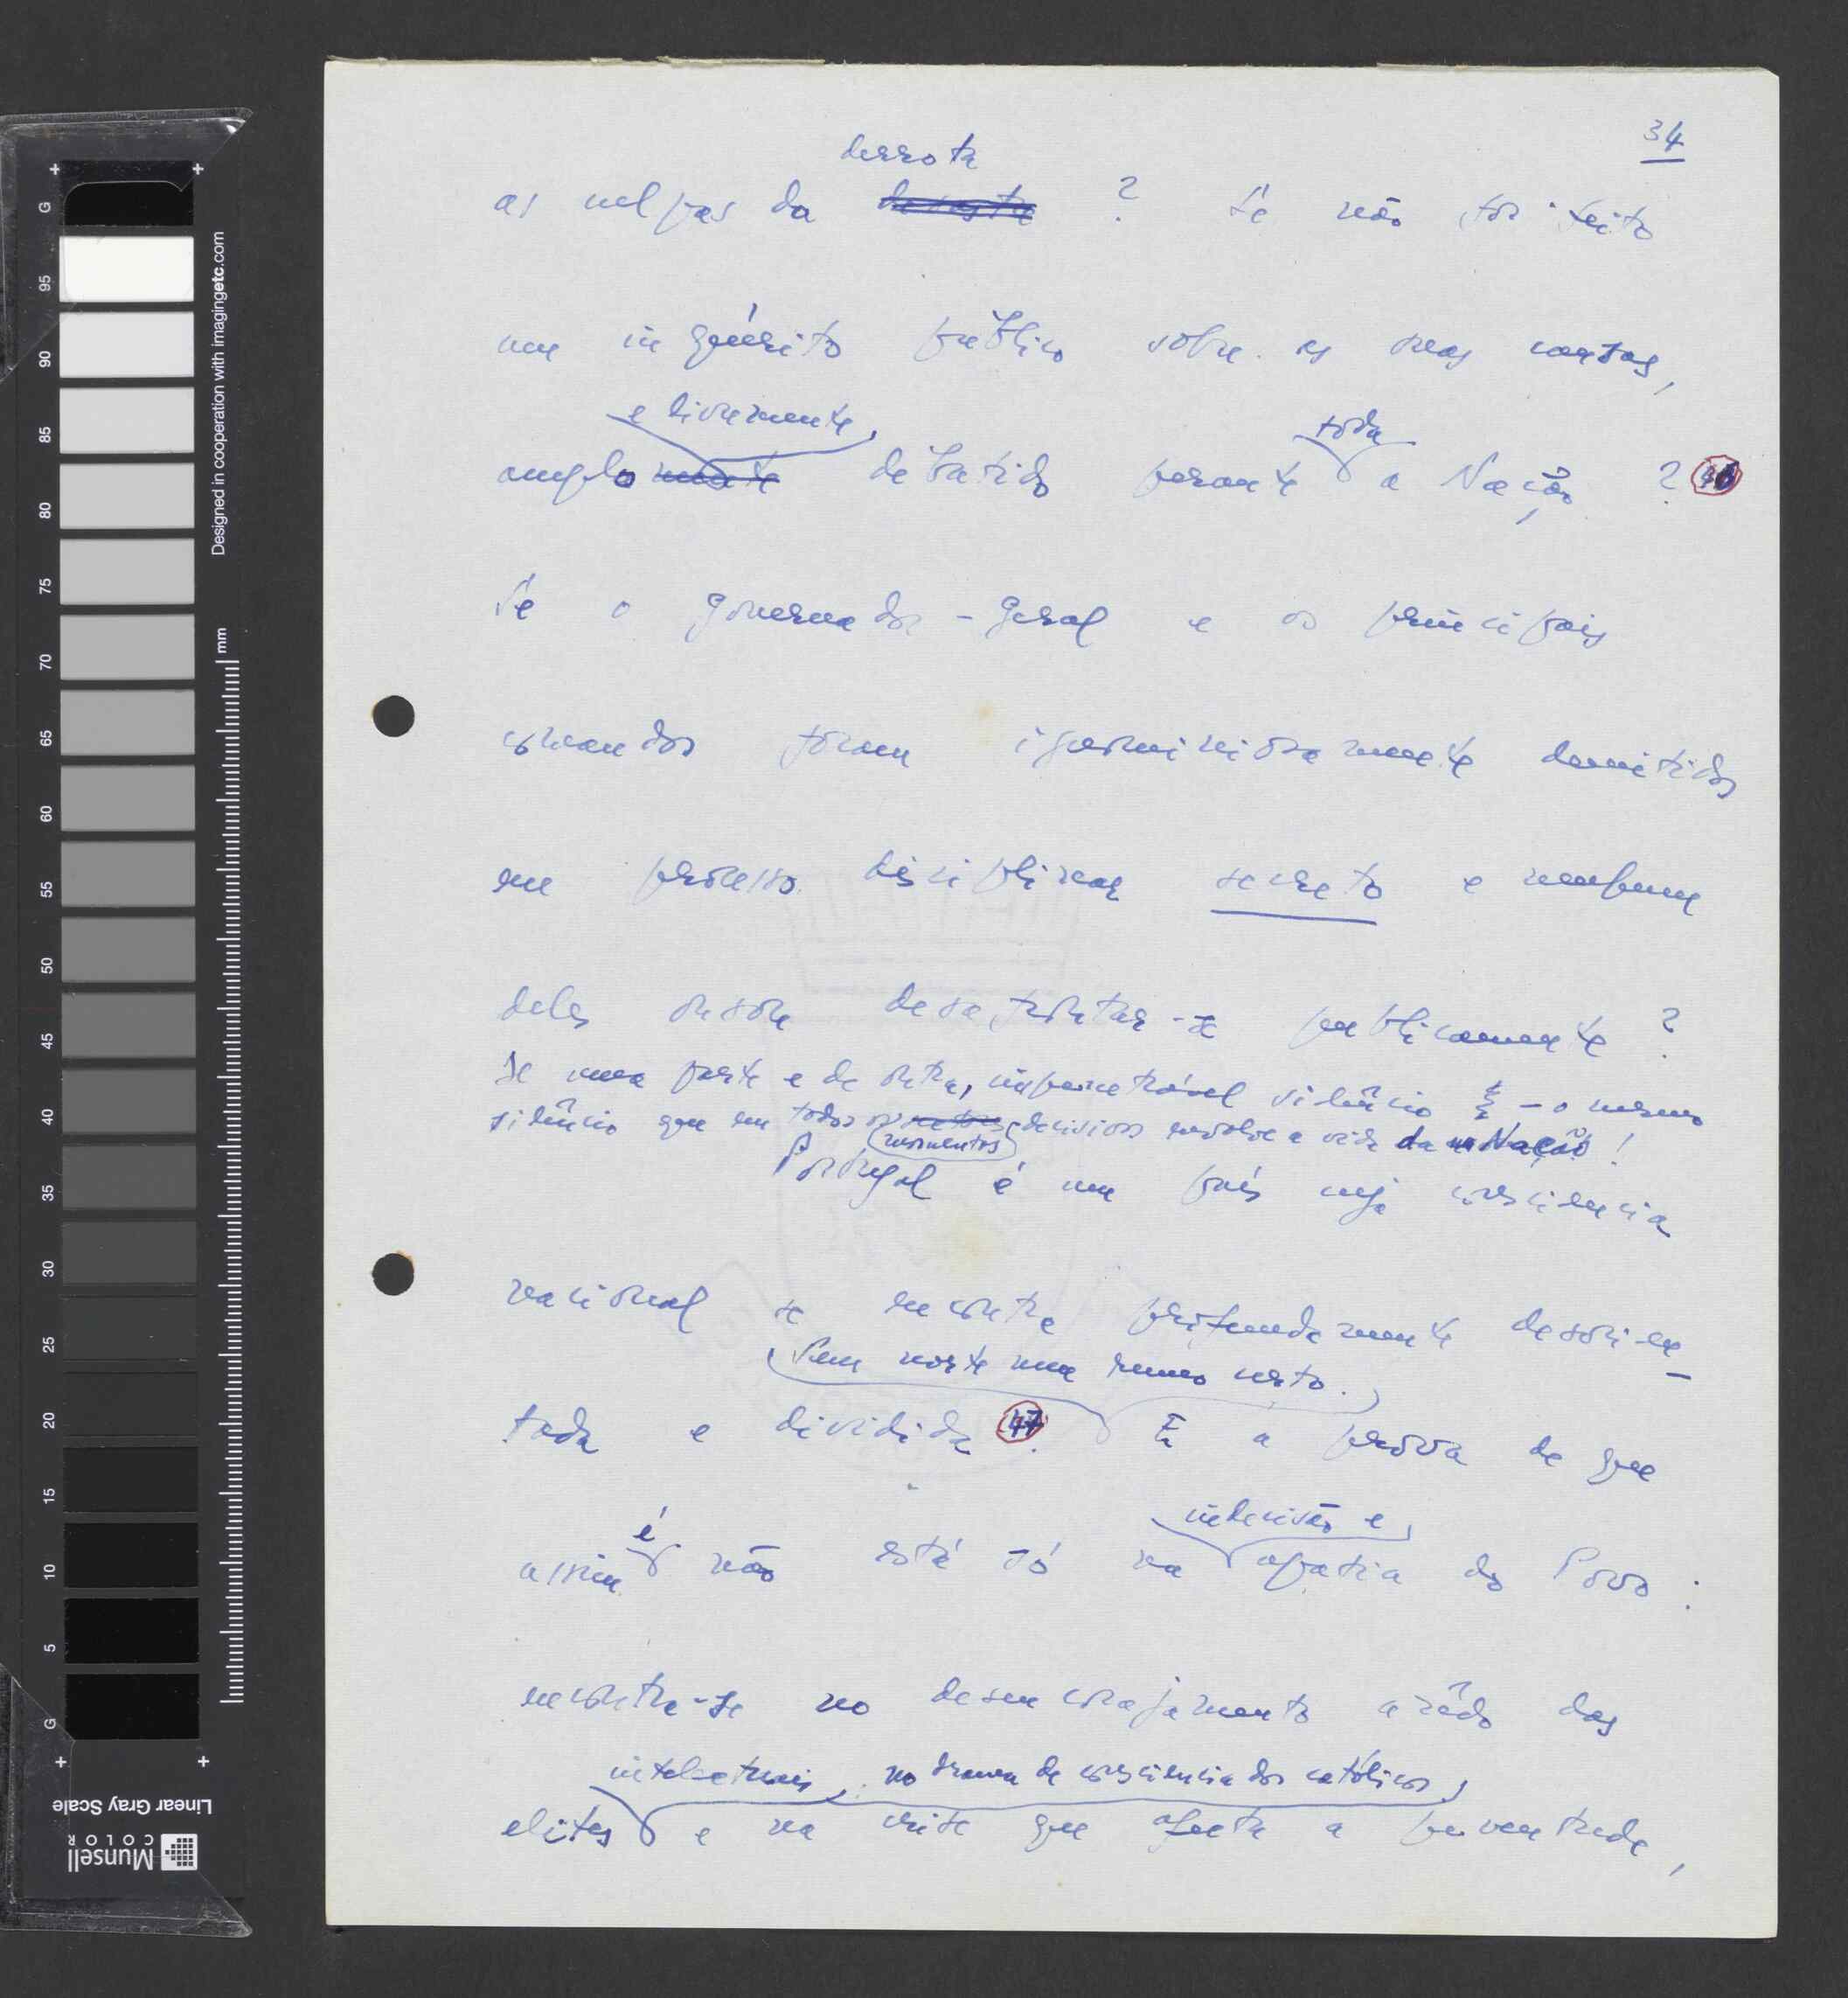 34
derrota
as culpas da ? Se não foi feito
um inquérito público sobre as suas causas,
e livremente toda
amplo debatido perante a Nação ? 46
Se o governador-geral e os principais
comandos foram ignominiosamente demitidos
em processo disciplinar secreto e nenhum
deles ousou desafrontar-se publicamente ?
De uma parte e de outra, impenetrável silêncio - o mesmo
silêncio que em todos os decisivos envolve a vida da Nação !
momentos
Portugal é um país cuja consciencia
nacional se encontra profundamente desorien-
Sem norte nem rumo certo.
tada e dividida 47. E a prova de que
é indecisão e
assim não está só na apatia do Povo :
encontra-se no desencorajamento das
intelectuais, no drama de consciencia dos católicos
elites e na crise que afecta a juventude,
G 95 90 85 80 75 70 65 60 55 50 45 40 35 30 25 20 15 10 5 G
mm
Designed in cooperation with imagingetc.com
Linear Gray Scale
Munsell
COLOR